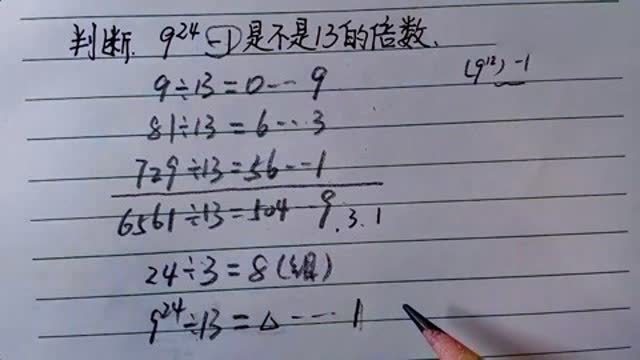 判断. 9²⁴-1是不是13的倍数.
(9¹²)-1
9÷13=0…9
81÷13=6…3
729÷13=56…1
6561÷13=504…9.3.1
24÷3=8(组)
9²⁴÷13=△…1